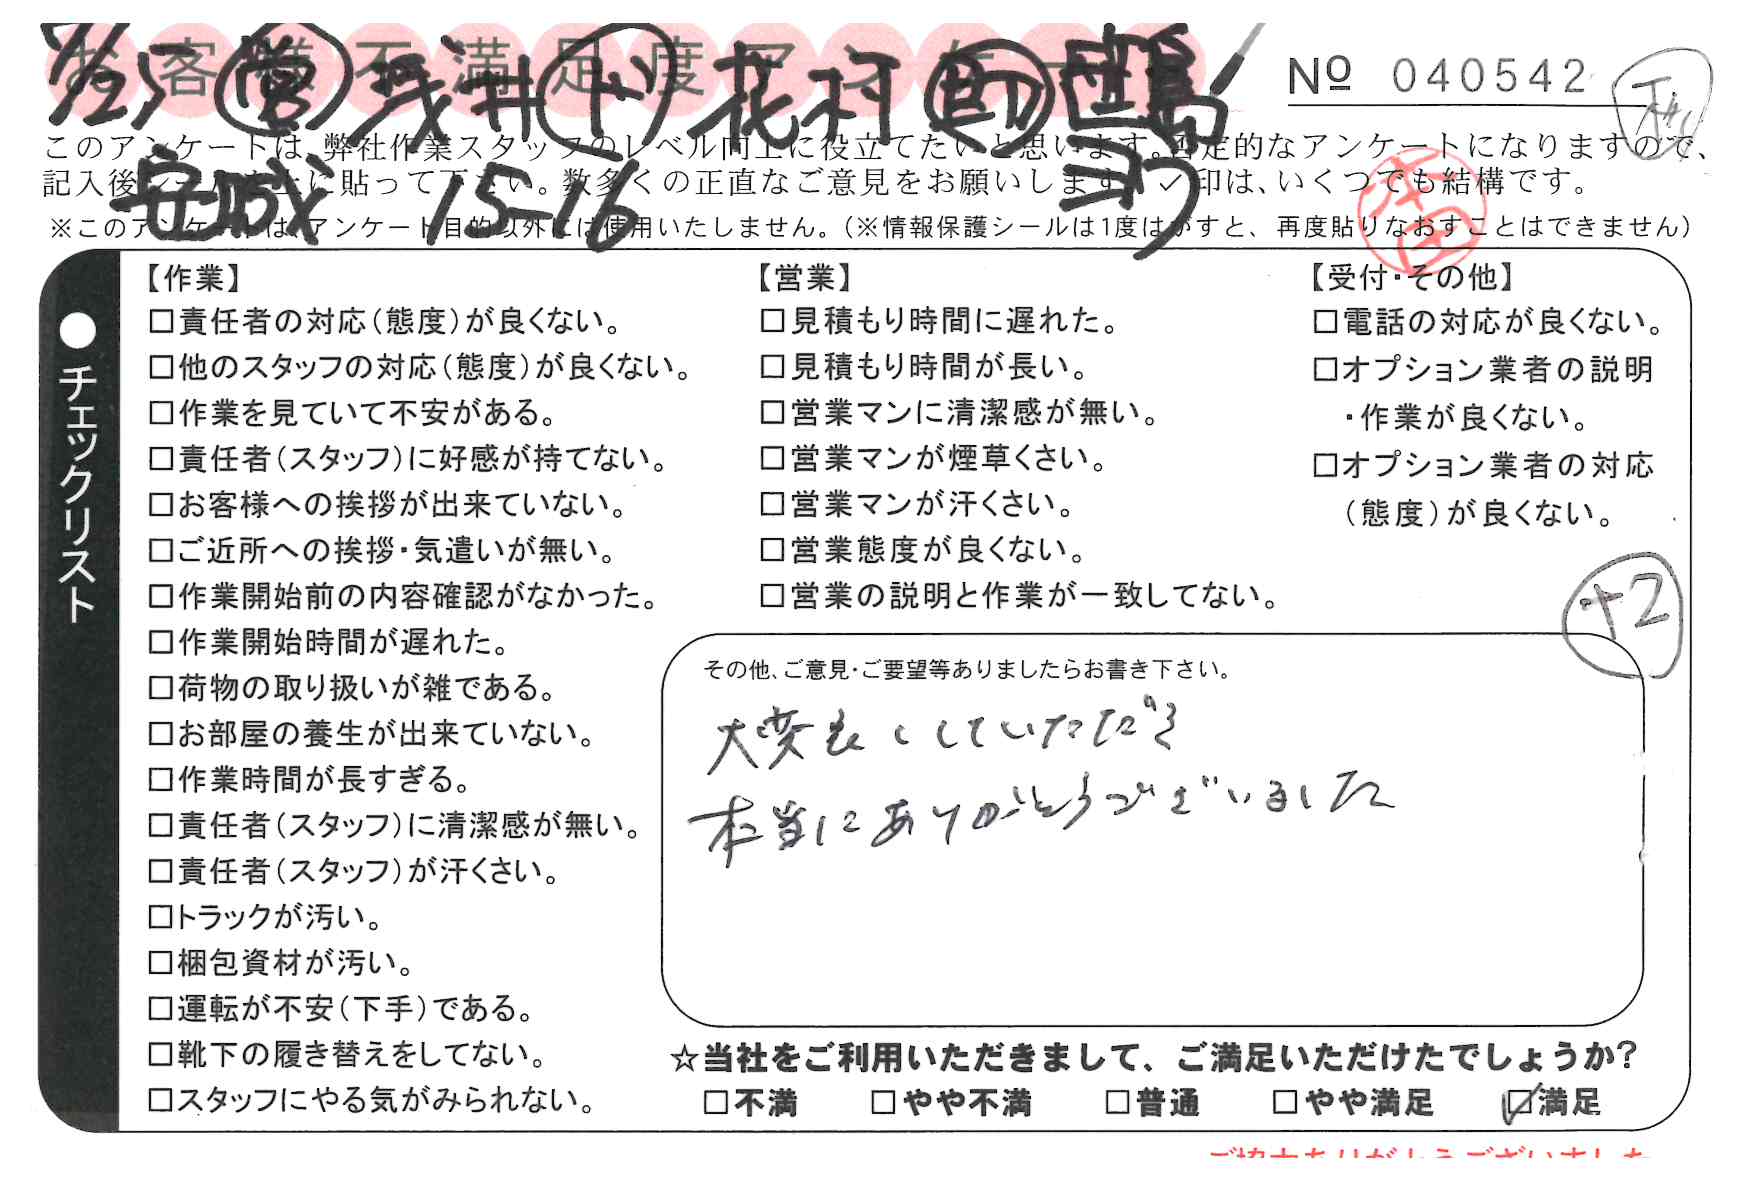 お客様不満足度アンケート
7/25 営 浅井 ト 花村 助 豊島
№ 040542
このアンケートは、弊社作業スタッフのレベル向上に役立てたいと思います。否定的なアンケートになりますので、
記入後シールを上に貼って下さい。数多くの正直なご意見をお願いします。✓印は、いくつでも結構です。
安城 15-16 ヨウ
本田
※このアンケートは、アンケート目的以外には使用いたしません。（※情報保護シールは1度はがすと、再度貼りなおすことはできません）
●チェックリスト
【作業】
□責任者の対応（態度）が良くない。
□他のスタッフの対応（態度）が良くない。
□作業を見ていて不安がある。
□責任者（スタッフ）に好感が持てない。
□お客様への挨拶が出来ていない。
□ご近所への挨拶・気遣いが無い。
□作業開始前の内容確認がなかった。
□作業開始時間が遅れた。
□荷物の取り扱いが雑である。
□お部屋の養生が出来ていない。
□作業時間が長すぎる。
□責任者（スタッフ）に清潔感が無い。
□責任者（スタッフ）が汗くさい。
□トラックが汚い。
□梱包資材が汚い。
□運転が不安（下手）である。
□靴下の履き替えをしてない。
□スタッフにやる気がみられない。
【営業】
□見積もり時間に遅れた。
□見積もり時間が長い。
□営業マンに清潔感が無い。
□営業マンが煙草くさい。
□営業マンが汗くさい。
□営業態度が良くない。
□営業の説明と作業が一致してない。
【受付・その他】
□電話の対応が良くない。
□オプション業者の説明
・作業が良くない。
□オプション業者の対応
（態度）が良くない。
+2
その他、ご意見・ご要望等ありましたらお書き下さい。
大変良くしていただき
本当にありがとうございました
☆当社をご利用いただきまして、ご満足いただけたでしょうか?
□不満 □やや不満 □普通 □やや満足 ☑満足
ご協力ありがとうございました